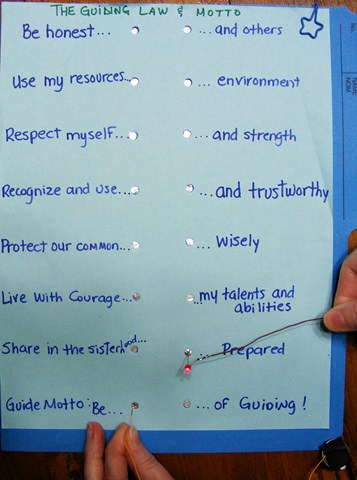 THE GUIDING LAW & MOTTO
Be honest... ...and others
Use my resources... ... environment
Respect myself... ...and strength
Recognize and use... ...and trustworthy
Protect our common... ... wisely
Live with Courage... ...my talents and
abilities
Share in the sisterhood... ... Prepared
Guide Motto: Be... ...of Guiding!